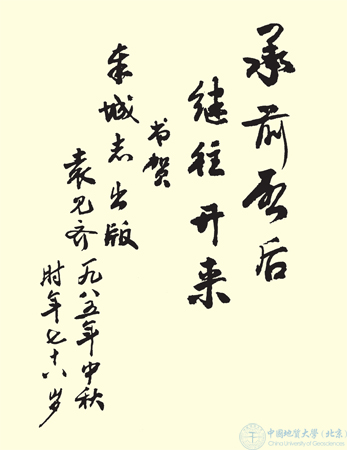 承前启后
继往开来
书贺
奉城志出版
袁见齐 一九八五年中秋
时年七十八岁
中國地質大學(北京)
China University of Geosciences